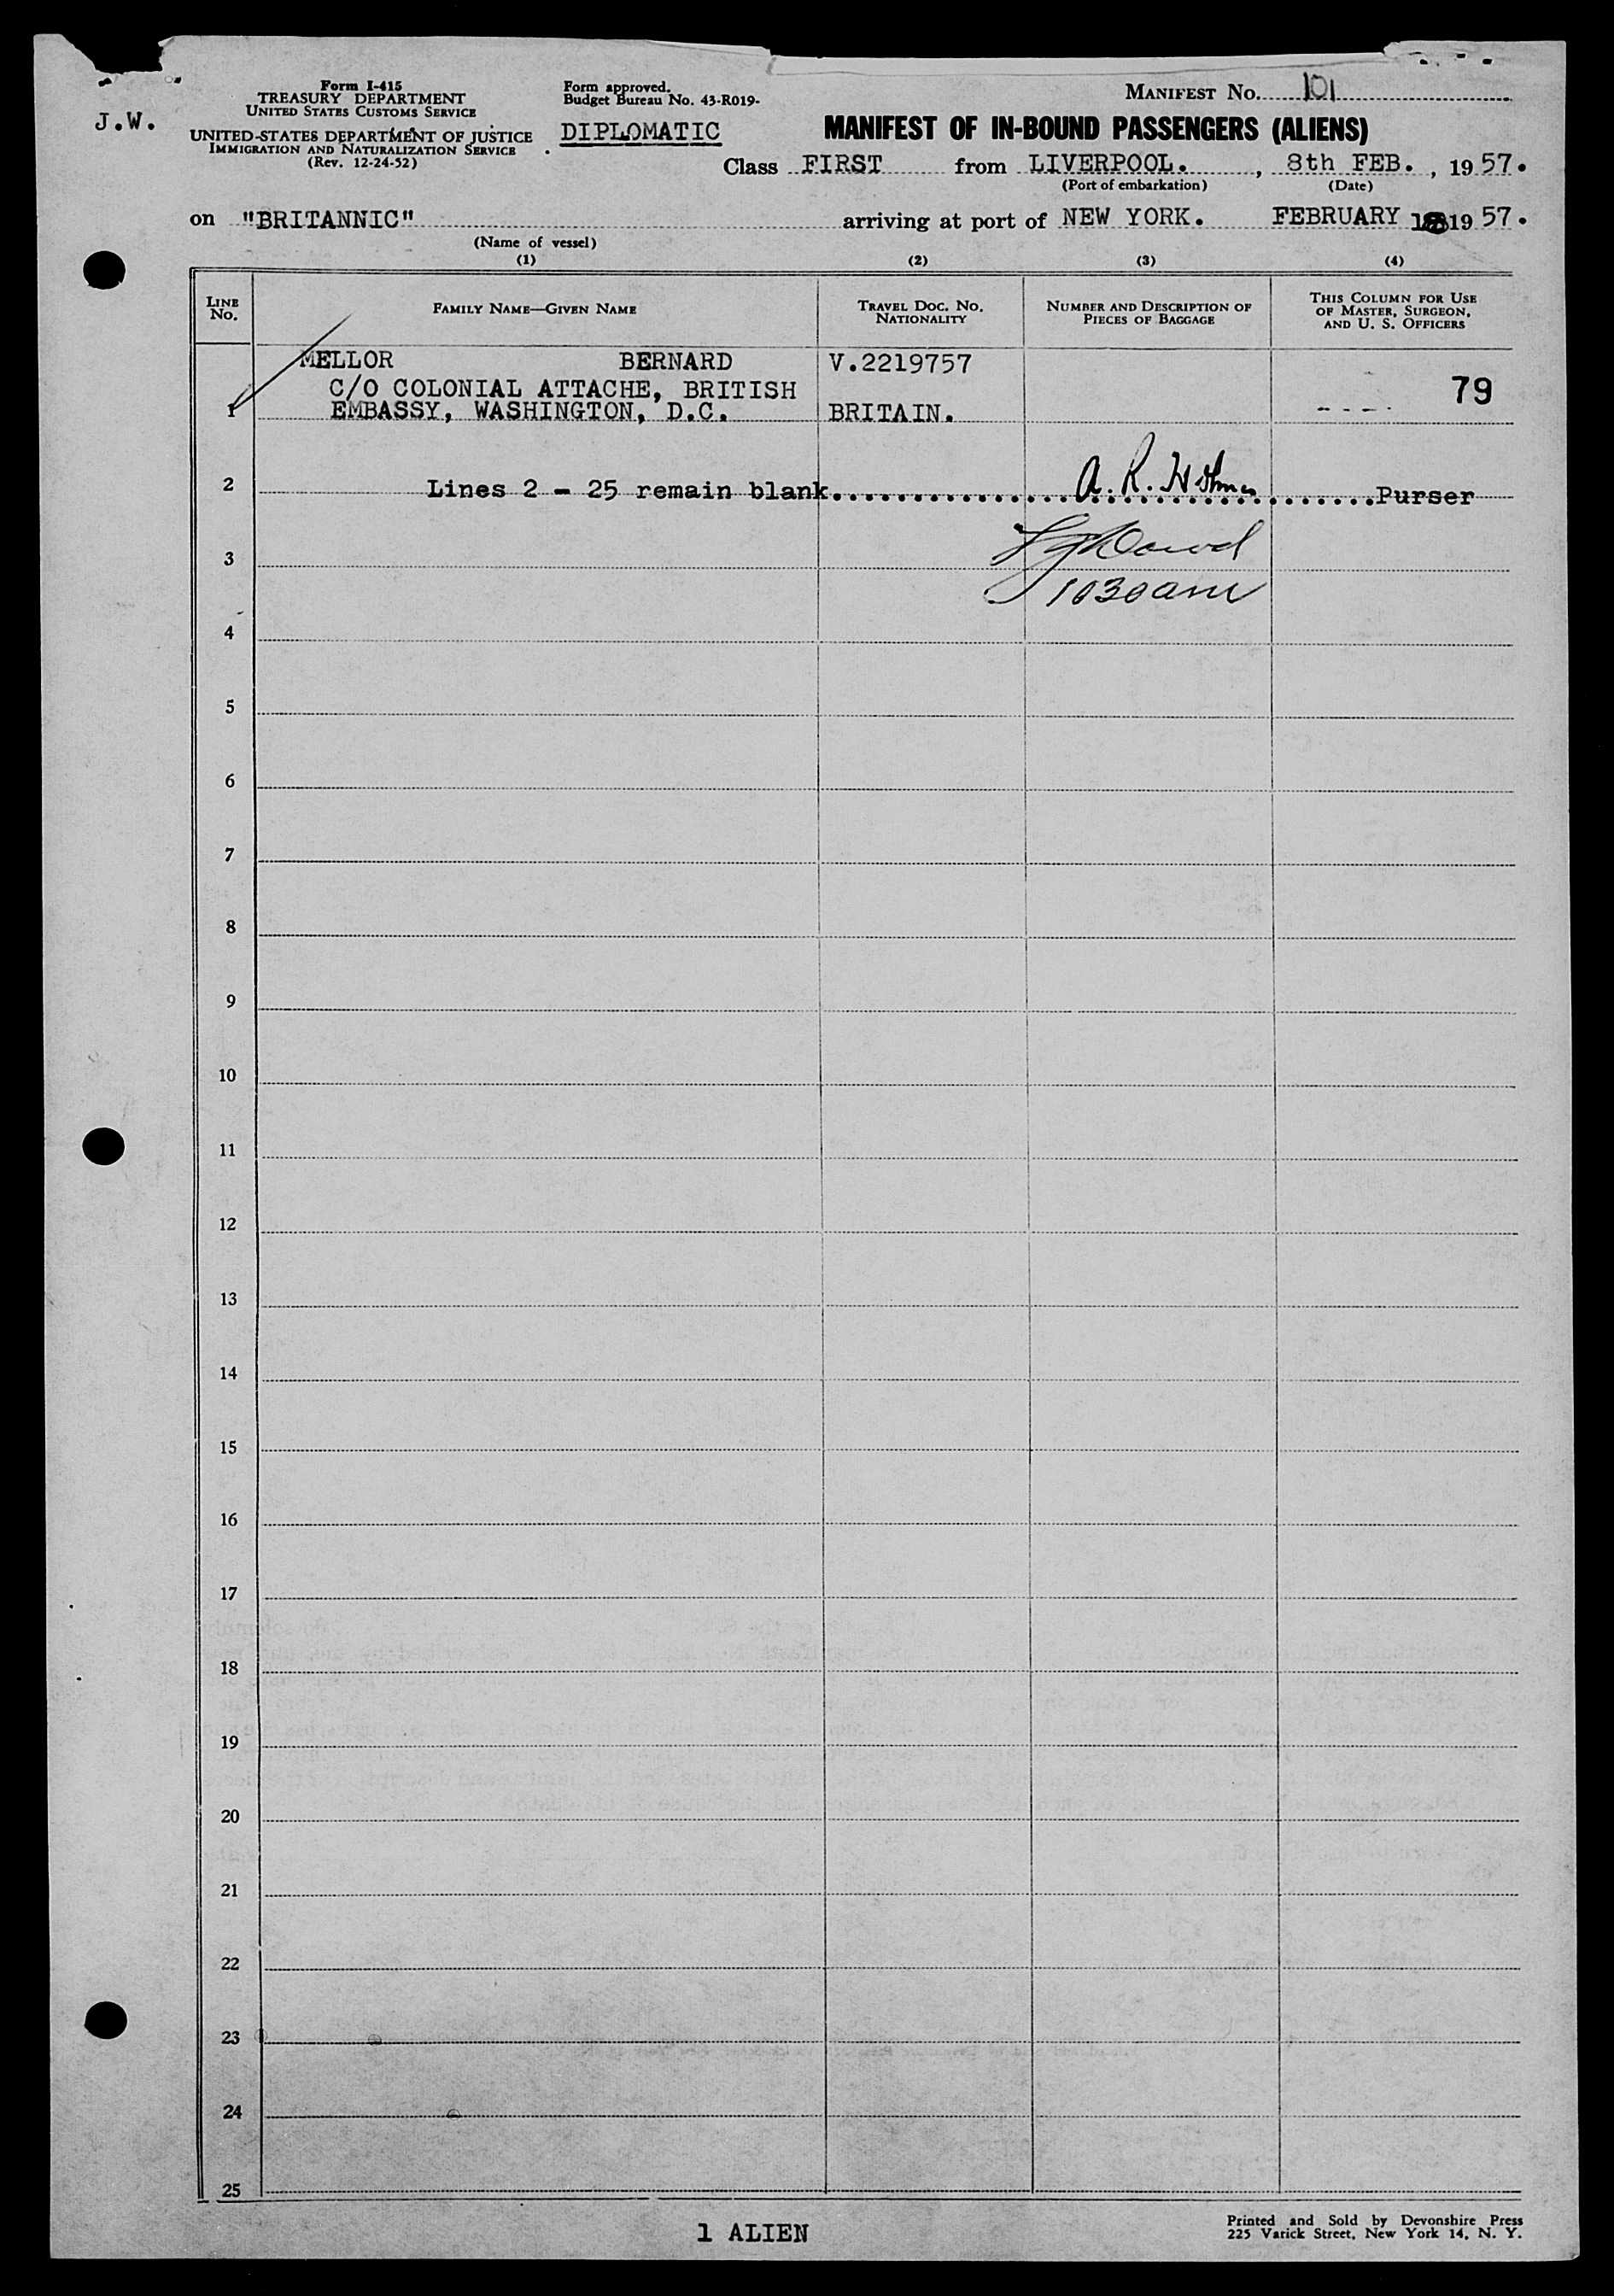 Form I-415
TREASURY DEPARTMENT
UNITED STATES CUSTOMS SERVICE
UNITED STATES DEPARTMENT OF JUSTICE
IMMIGRATION AND NATURALIZATION SERVICE
(Rev. 12-24-52)
J.W.
Form approved.
Budget Bureau No. 43-R019-
DIPLOMATIC
MANIFEST NO. 101
MANIFEST OF IN-BOUND PASSENGERS (ALIENS)
Class FIRST from LIVERPOOL. , 8th FEB. , 1957.
(Port of embarkation) (Date)
on "BRITANNIC" arriving at port of NEW YORK. FEBRUARY 1957.
(Name of vessel)
(1) (2) (3) (4)
LINE NO. FAMILY NAME—GIVEN NAME TRAVEL DOC. NO. NATIONALITY NUMBER AND DESCRIPTION OF PIECES OF BAGGAGE THIS COLUMN FOR USE OF MASTER, SURGEON, AND U. S. OFFICERS
MELLOR BERNARD V.2219757
C/O COLONIAL ATTACHE, BRITISH 79
1 EMBASSY, WASHINGTON, D.C. BRITAIN.
2 Lines 2 - 25 remain blank. A. R. Purser
3
1030am
4
5
6
7
8
9
10
11
12
13
14
15
16
17
18
19
20
21
22
23
24
25
1 ALIEN
Printed and Sold by Devonshire Press
225 Varick Street, New York 14, N. Y.